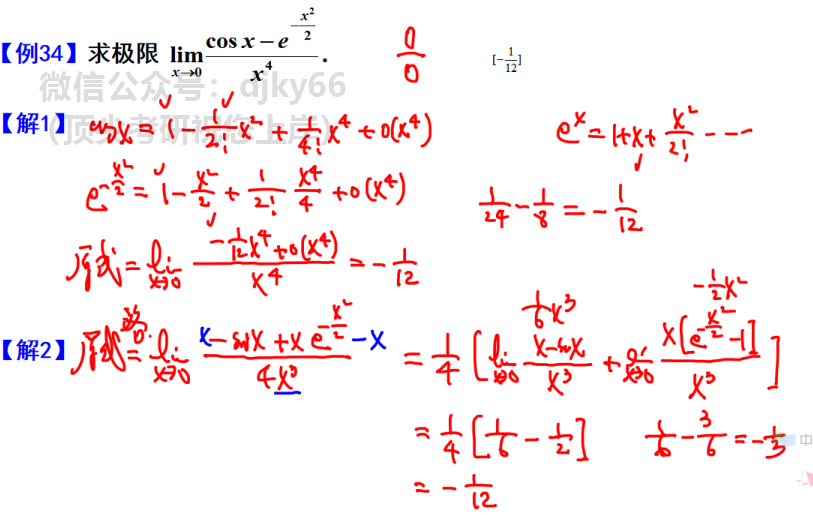 【例34】求极限 lim_{x→0} (cos x − e^{−x²/2}) / x⁴ . 0/0 [−1/12]
微信公众号：djky66
(顶尖考研祝您上岸)
【解1】 cosx = 1 − 1/2! x² + 1/4! x⁴ + o(x⁴) eˣ = 1+x+ x²/2! ----
e^{−x²/2} = 1 − x²/2 + 1/2! x⁴/4 + o(x⁴) 1/24 − 1/8 = − 1/12
原式 = lim_{x→0} (−1/12 x⁴ + o(x⁴)) / x⁴ = − 1/12
1/6 x³ −1/2 x²
【解2】 原式 = lim_{x→0} (x − sinx + x e^{−x²/2} − x) / 4x³ = 1/4 [ lim_{x→0} (x−sinx)/x³ + lim_{x→0} x[e^{−x²/2} −1]/x³ ]
= 1/4 [ 1/6 − 1/2 ] 1/6 − 3/6 = − 1/3
= − 1/12
中